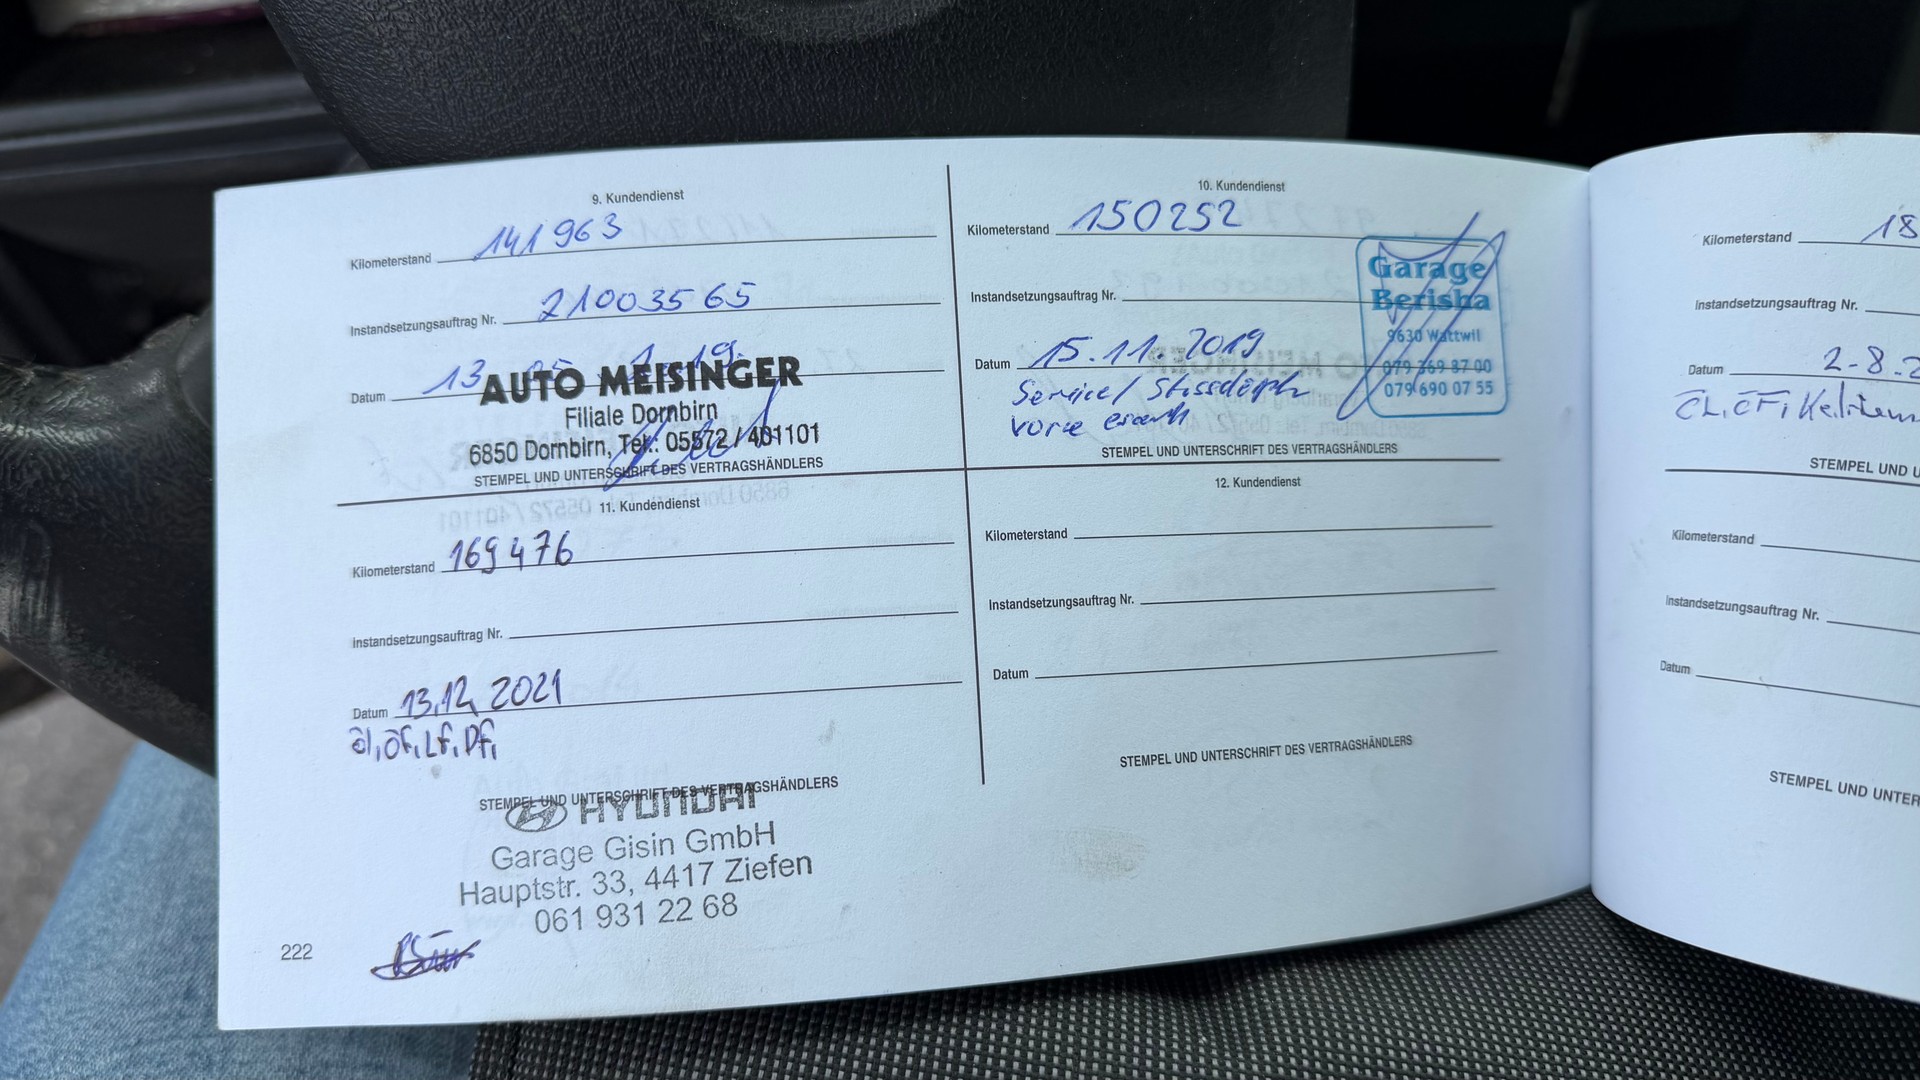 9. Kundendienst
Kilometerstand 141963
Instandsetzungsauftrag Nr. 21003565
Datum 13
AUTO MEISINGER
Filiale Dornbirn
6850 Dornbirn, Tel.: 05572 / 401101
STEMPEL UND UNTERSCHRIFT DES VERTRAGSHÄNDLERS
10. Kundendienst
Kilometerstand 150252
Instandsetzungsauftrag Nr.
Datum 15.11.2019
Service/
vorne
Garage
Berisha
9630 Wattwil
079 369 87 00
079 690 07 55
STEMPEL UND UNTERSCHRIFT DES VERTRAGSHÄNDLERS
11. Kundendienst
Kilometerstand 169476
Instandsetzungsauftrag Nr.
Datum 13.12.2021
Öl, Öf, Lf, Df,
STEMPEL UND UNTERSCHRIFT DES VERTRAGSHÄNDLERS
HYUNDAI
Garage Gisin GmbH
Hauptstr. 33, 4417 Ziefen
061 931 22 68
222
12. Kundendienst
Kilometerstand
Instandsetzungsauftrag Nr.
Datum
STEMPEL UND UNTERSCHRIFT DES VERTRAGSHÄNDLERS
Kilometerstand 18
Instandsetzungsauftrag Nr.
Datum 2-8.2
STEMPEL UND U
Kilometerstand
Instandsetzungsauftrag Nr.
Datum
STEMPEL UND UNTER